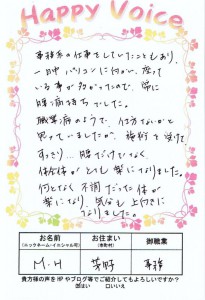 Happy Voice
事務系の仕事をしていたこともあり、
一日中パソコンに向かい、座って
いる事が多かったので、常に
腰痛持ちでした。
職業病のようで、仕方ないかと
思っていましたが、施術を受けて
すっきり… 腰だけでなく、
体全体がとても楽になりました。
何となく不調だった体が
楽になり、気分も上向きに
なりました。
お名前
(ニックネーム・イニシャル可)
お住まい
(市町村)
御職業
M・H
事務
貴方様の声をHPやブログ等でご紹介してもよろしいですか？
はい □いいえ